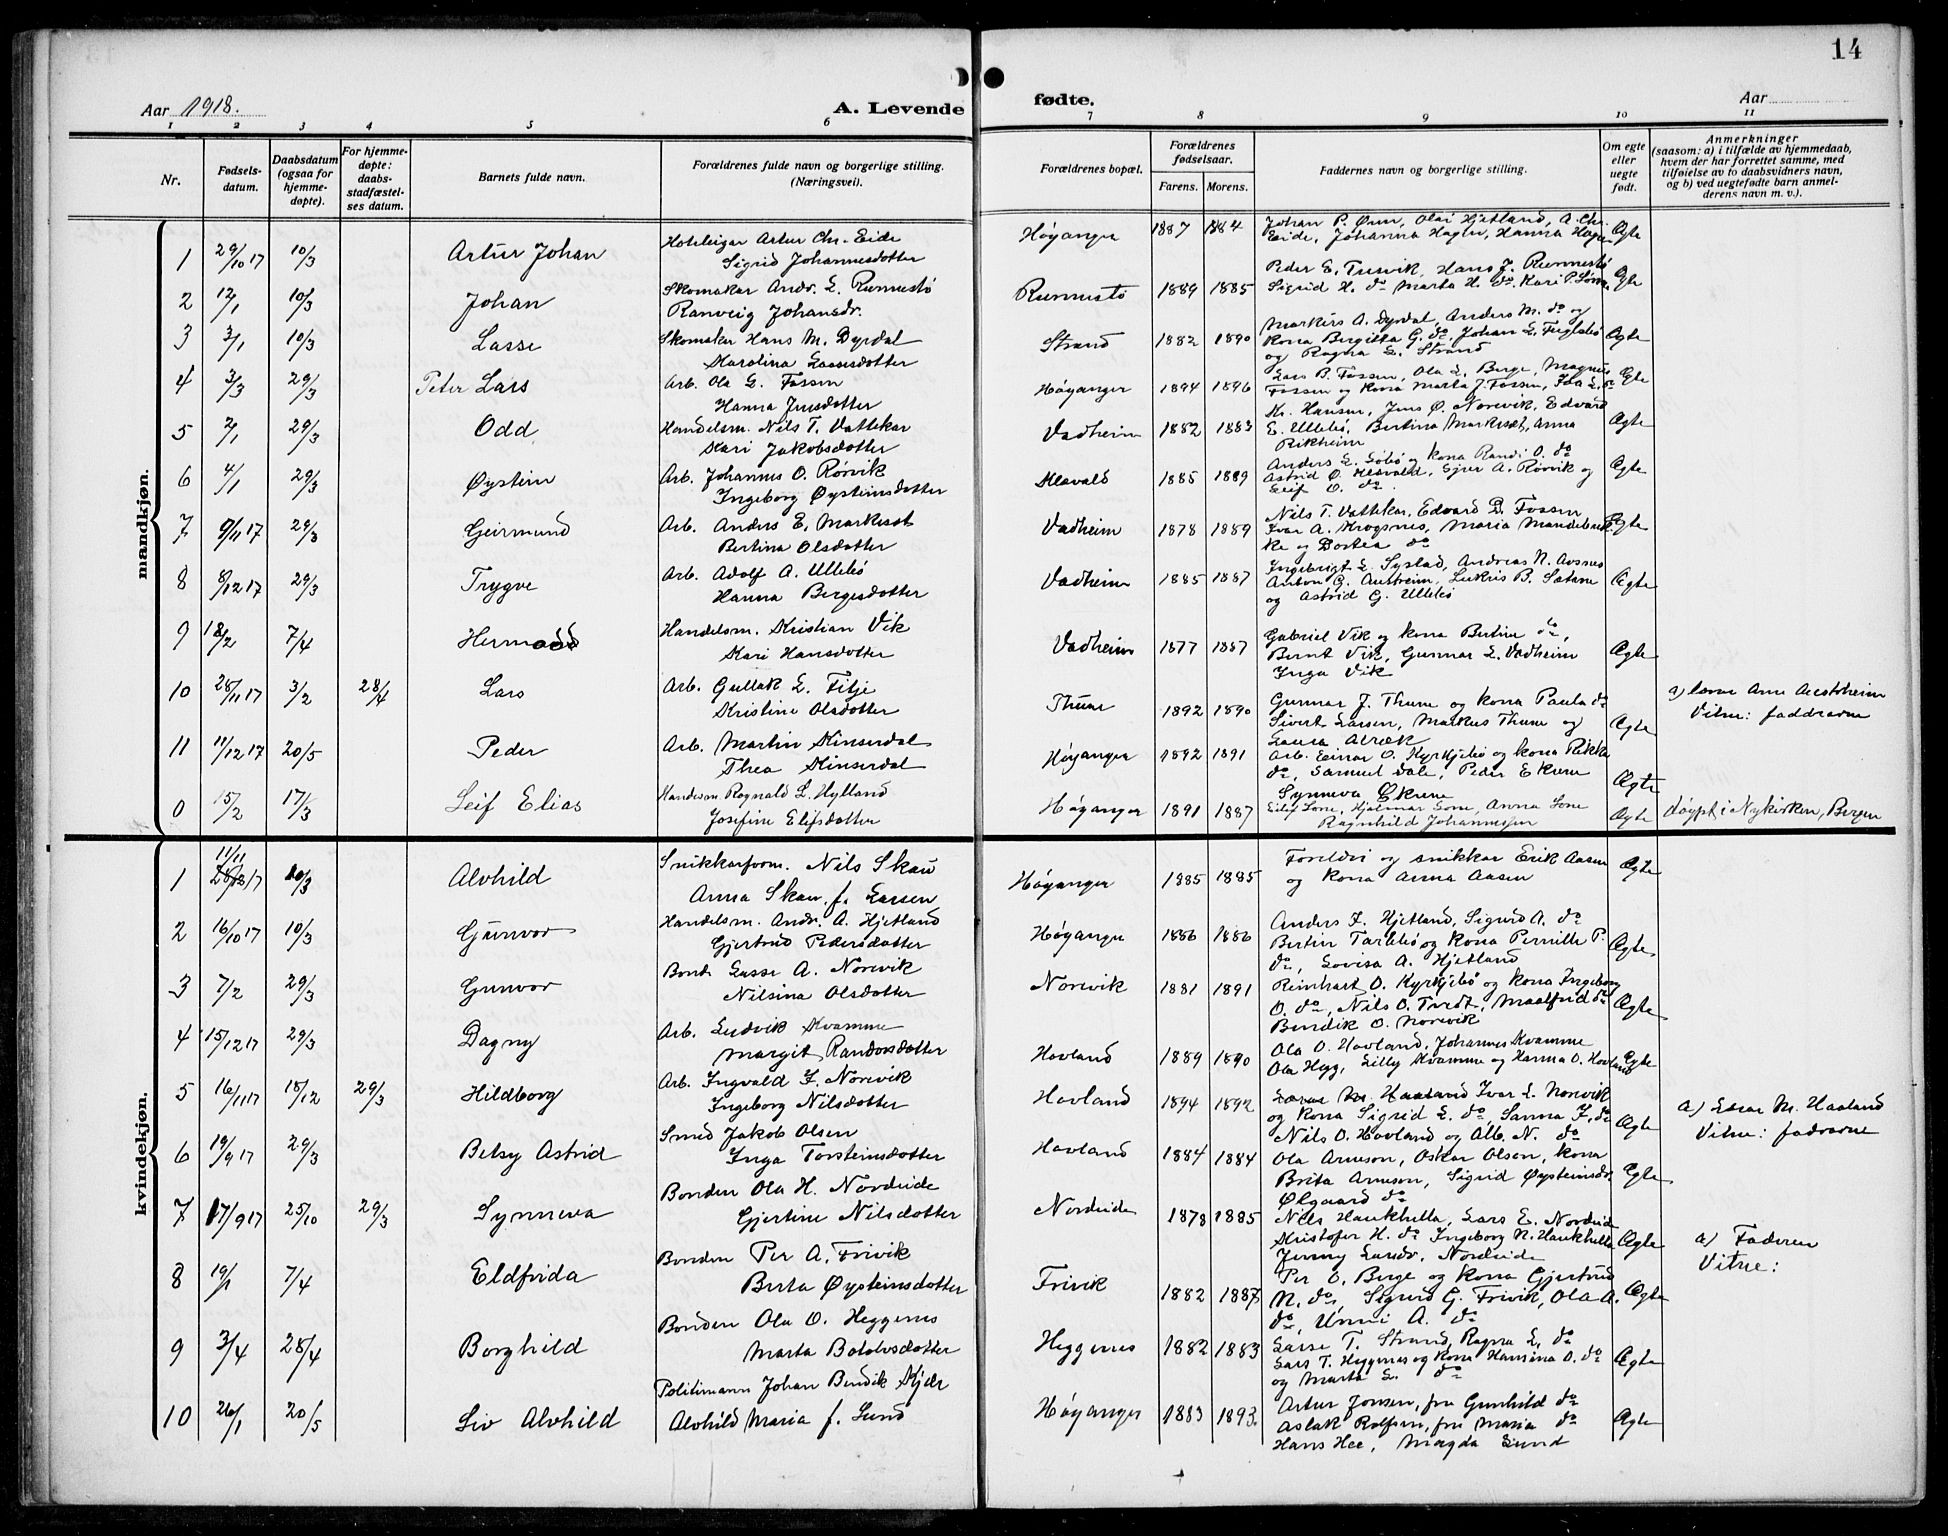 14
Aar 1918.
A. Levende fødte.
Aar
1 2 3 4 5 6 7 8 9 10 11
Nr.
Fødsels-
datum.
Daabsdatum
(ogsaa for
hjemme-
døpte).
For hjemme-
døpte:
daabs-
stadfæstel-
ses datum.
Barnets fulde navn.
Forældrenes fulde navn og borgerlige stilling.
(Næringsvei).
Forældrenes bopæl.
Forældrenes
fødselsaar.
Farens. Morens.
Faddernes navn og borgerlige stilling.
Om egte
eller
uegte
født.
Anmerkninger
(saasom: a) i tilfælde av hjemmedaab,
hvem der har forrettet samme, med
tilføielse av to daabsvidners navn,
og b) ved uegtefødte barn anmel-
derens navn m. v.).
mandkjøn.
1 29/10 17 10/3 Artur Johan Hoteleigar Artur Chr. Eide
Sigrid Johannesdotter
Høyanger 1887 1884 Johan P. Øren, Olai Hjetland, A. Chr.
Eide, Johanna Hagen, Hanna Hagen Ægte
2 12/1 10/3 Johan Skomakar Andr. L. Runnestø
Ranveig Johansdr.
Runnestø 1889 1885 Peder E. Tusvik, Hans J. Runnestø
Sigrid H. do Marta H. do Kari P. Ægte
3 3/1 10/3 Lasse Skomakar Hans M. Dyrdal
Karolina Lassesdotter
Strand 1882 1890 Markus A. Dyrdal, Anders M. do og
kona Bergitta G. do, Johan L. Fuglebø
og Ragna L. Strand Ægte
4 3/3 29/3 Peter Lars Arb. Ola G. Fossen
Hanna Jensdotter
Høyanger 1894 1896 Lars B. Fossen, Ola L. Berge, Magnus
Fossen og kona Marta J. Fossen, Ida L. do Ægte
5 2/1 29/3 Odd Handelsm. Nils T. Vattekar
Kari Jakobsdotter
Vadheim 1882 1883 Kr. Hansen, Jens O. Norevik, Edvard
E. Ullebø, Bertina Markeset, Anna
Rikheim Ægte
6 4/1 29/3 Øystein Arb. Johannes O. Rørvik
Ingeborg Øysteinsdotter
Klævold 1885 1889 Anders L. Søbø og kona Randi O. do
Astrid O. Klævold, Gjer A. Rørvik og
Leif O. do. Ægte
7 9/11 17 29/3 Geirmund Arb. Anders E. Markeset
Bertina Olsdotter
Vadheim 1878 1889 Nils T. Vattekar, Edvard D. Fossen
Ivar A. Krogsnes, Maria Mandelbrek-
ke og Dortea do Ægte
8 8/12 17 29/3 Trygve Arb. Adolf A. Ullebø
Hanna Bergesdotter
Vadheim 1885 1887 Ingebrigt L. Systad, Andreas N. Avsnes
Anton G. Autheim, Lukris B. Sætam
og Astrid G. Ullebø Ægte
9 18/2 7/4 Hermodd Handelsm. Kristian Vik
Kari Hansdotter
Vadheim 1877 1887 Gabriel Vik og kona Bertine do,
Bernt Vik, Gunnar L. Vadheim
Inga Vik Ægte
10 28/11 17 3/2 28/4 Lars Arb. Gullak L. Fitje
Kristine Olsdotter
Thune 1892 1890 Gunnar J. Thune og kona Paula do
Sivert Larsen, Markus Thune og
Laura Alræk Ægte
a) lærar Arne Austrheim
Vitne: faddrarne
11 11/12 17 20/5 Peder Arb. Martin Kinserdal
Thea Kinserdal
Høyanger 1892 1891 Arb. Einar O. Kyrkjebø og kona Rikka
do, Samuel Dale, Peder Ekrene
Synneva Ekrene Ægte
0 15/2 17/3 Leif Elias Handelsm Ragnald L. Hylland
Josefine Elifsdotter
Høyanger 1891 1887 Eilif Sone, Hjalmar Sone, Anna Sone
Ragnhild Johannesen Ægte
døypt i Nykirken, Bergen
kvindekjøn.
1 11/11 17 10/3 Alvhild Snikkarform. Nils Skau
Anna Skau f. Larsen
Høyanger 1885 1885 Foreldri og snikkar Erik Aasen
og kona Anna Aasen Ægte
2 16/10 17 10/3 Gunvor Handelsm. Andr. A. Hjetland
Gjertrud Pedersdotter
Høyanger 1886 1886 Anders J. Hjetland, Sigurd A. do
Bertin Tarlebø og kona Pernille P.
do, Lovisa A. Hjetland Ægte
3 7/2 29/3 Gunvor Bond. Lasse A. Norevik
Nilsina Olsdotter
Norevik 1881 1891 Reinhart O. Kyrkjebø og kona Ingeborg
O. do, Nils O. Tveit, Maalfrid do
Bendik O. Norevik Ægte
4 15/12 17 29/3 Dagny Arb. Ludvik Kvamme
Margit Randorsdotter
Hovland 1889 1890 Ola O. Hovland, Johannes Kvamme
Ola Hegg, Lilly Kvamme og Hanna O. Hovland Ægte
5 16/11 17 18/12 29/3 Hildborg Arb. Ingvald I. Norevik
Ingeborg Nilsdotter
Hovland 1894 1892 Lærar M. Haaland Ivar L. Norevik
og kona Sigrid L. do, Sanna I. do
Nils O. Hovland og Alb. N. do Ægte
a) Lærar M. Haaland
Vitne: fadrarne
6 19/9 17 29/3 Betsy Astrid Smed Jakob Olsen
Inga Torsteinsdotter
Hovland 1884 1884 Ola Arneson, Oskar Olsen, kona
Brita Arneson, Sigrid Øysteinsdr.
Ølgaard do Ægte
7 17/9 17 25/10 29/3 Synneva Bonden Ola H. Nordeide
Gjertine Nilsdotter
Nordeide 1878 1885 Nils Haukhella, Lars E. Nordeide
Kristofer H. do Ingeborg N. Haukhella
Jenny Larsdr. Nordeide Ægte
a) Faderen
Vitne:
8 19/1 7/4 Eldfrida Bonden Per A. Frivik
Berta Øysteinsdotter
Frivik 1882 1887 Per O. Berge og kona Gjertrud
N. do, Sigurd G. Frivik, Ola A.
do, Unni A. do Ægte
9 3/4 28/4 Borghild Bonden Ola O. Heggenes
Marta Botolvsdotter
Heggenes 1882 1883 Lasse T. Strand, Ragna L. do
Lars T. Heggenes og kona Hansina O. do
og Marta L. do Ægte
10 26/1 20/5 Liv Alvhild Politimann Johan Bendik Kjær
Alvhild Maria f. Lund
Høyanger 1883 1893 Artur Jonsen, fru Gunhild do
Aslak Rolfsen, fru Maria do
Hans Hee, Magda Lund Ægte